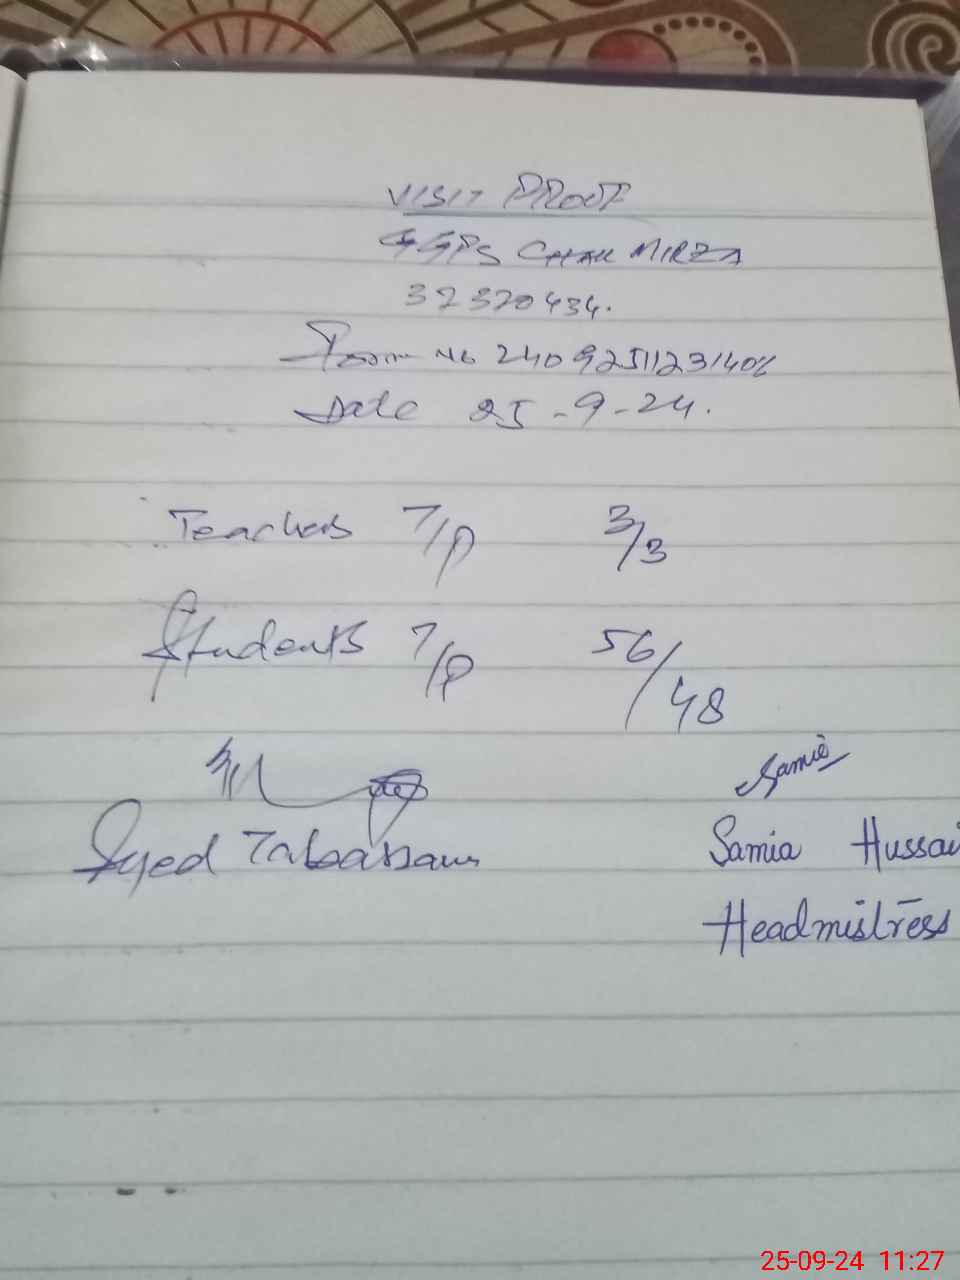 VISIT PROOF
GGPS CHAK MIRZA
37320434.
Form No 24092511231406
Date 25-9-24.
Teachers T/P 3/3
Students T/P 56/48
Samia
Syed Tabassam
Samia Hussai
Headmistress
25-09-24 11:27